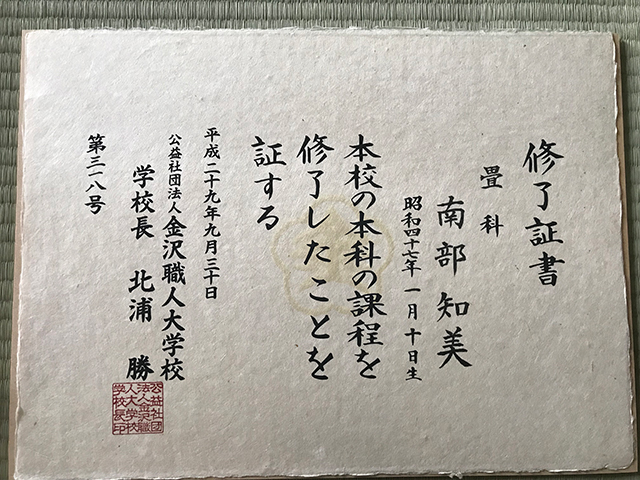 修了証書
畳科
南部知美
昭和四十七年一月十日生
本校の本科の課程を
修了したことを
証する
平成二十九年九月三十日
公益社団法人金沢職人大学校
学校長 北浦 勝
第三一八号
公益社団
法人金沢職
人大学校
学校長印